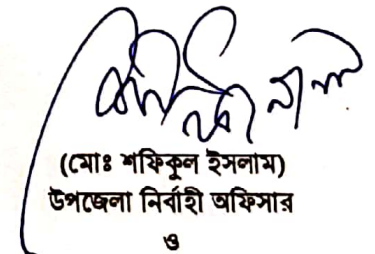 (মোঃ শফিকুল ইসলাম)
উপজেলা নির্বাহী অফিসার
ও